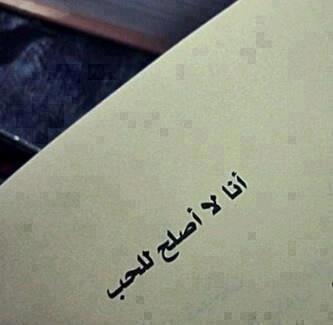 أنا لا أصلح للحب